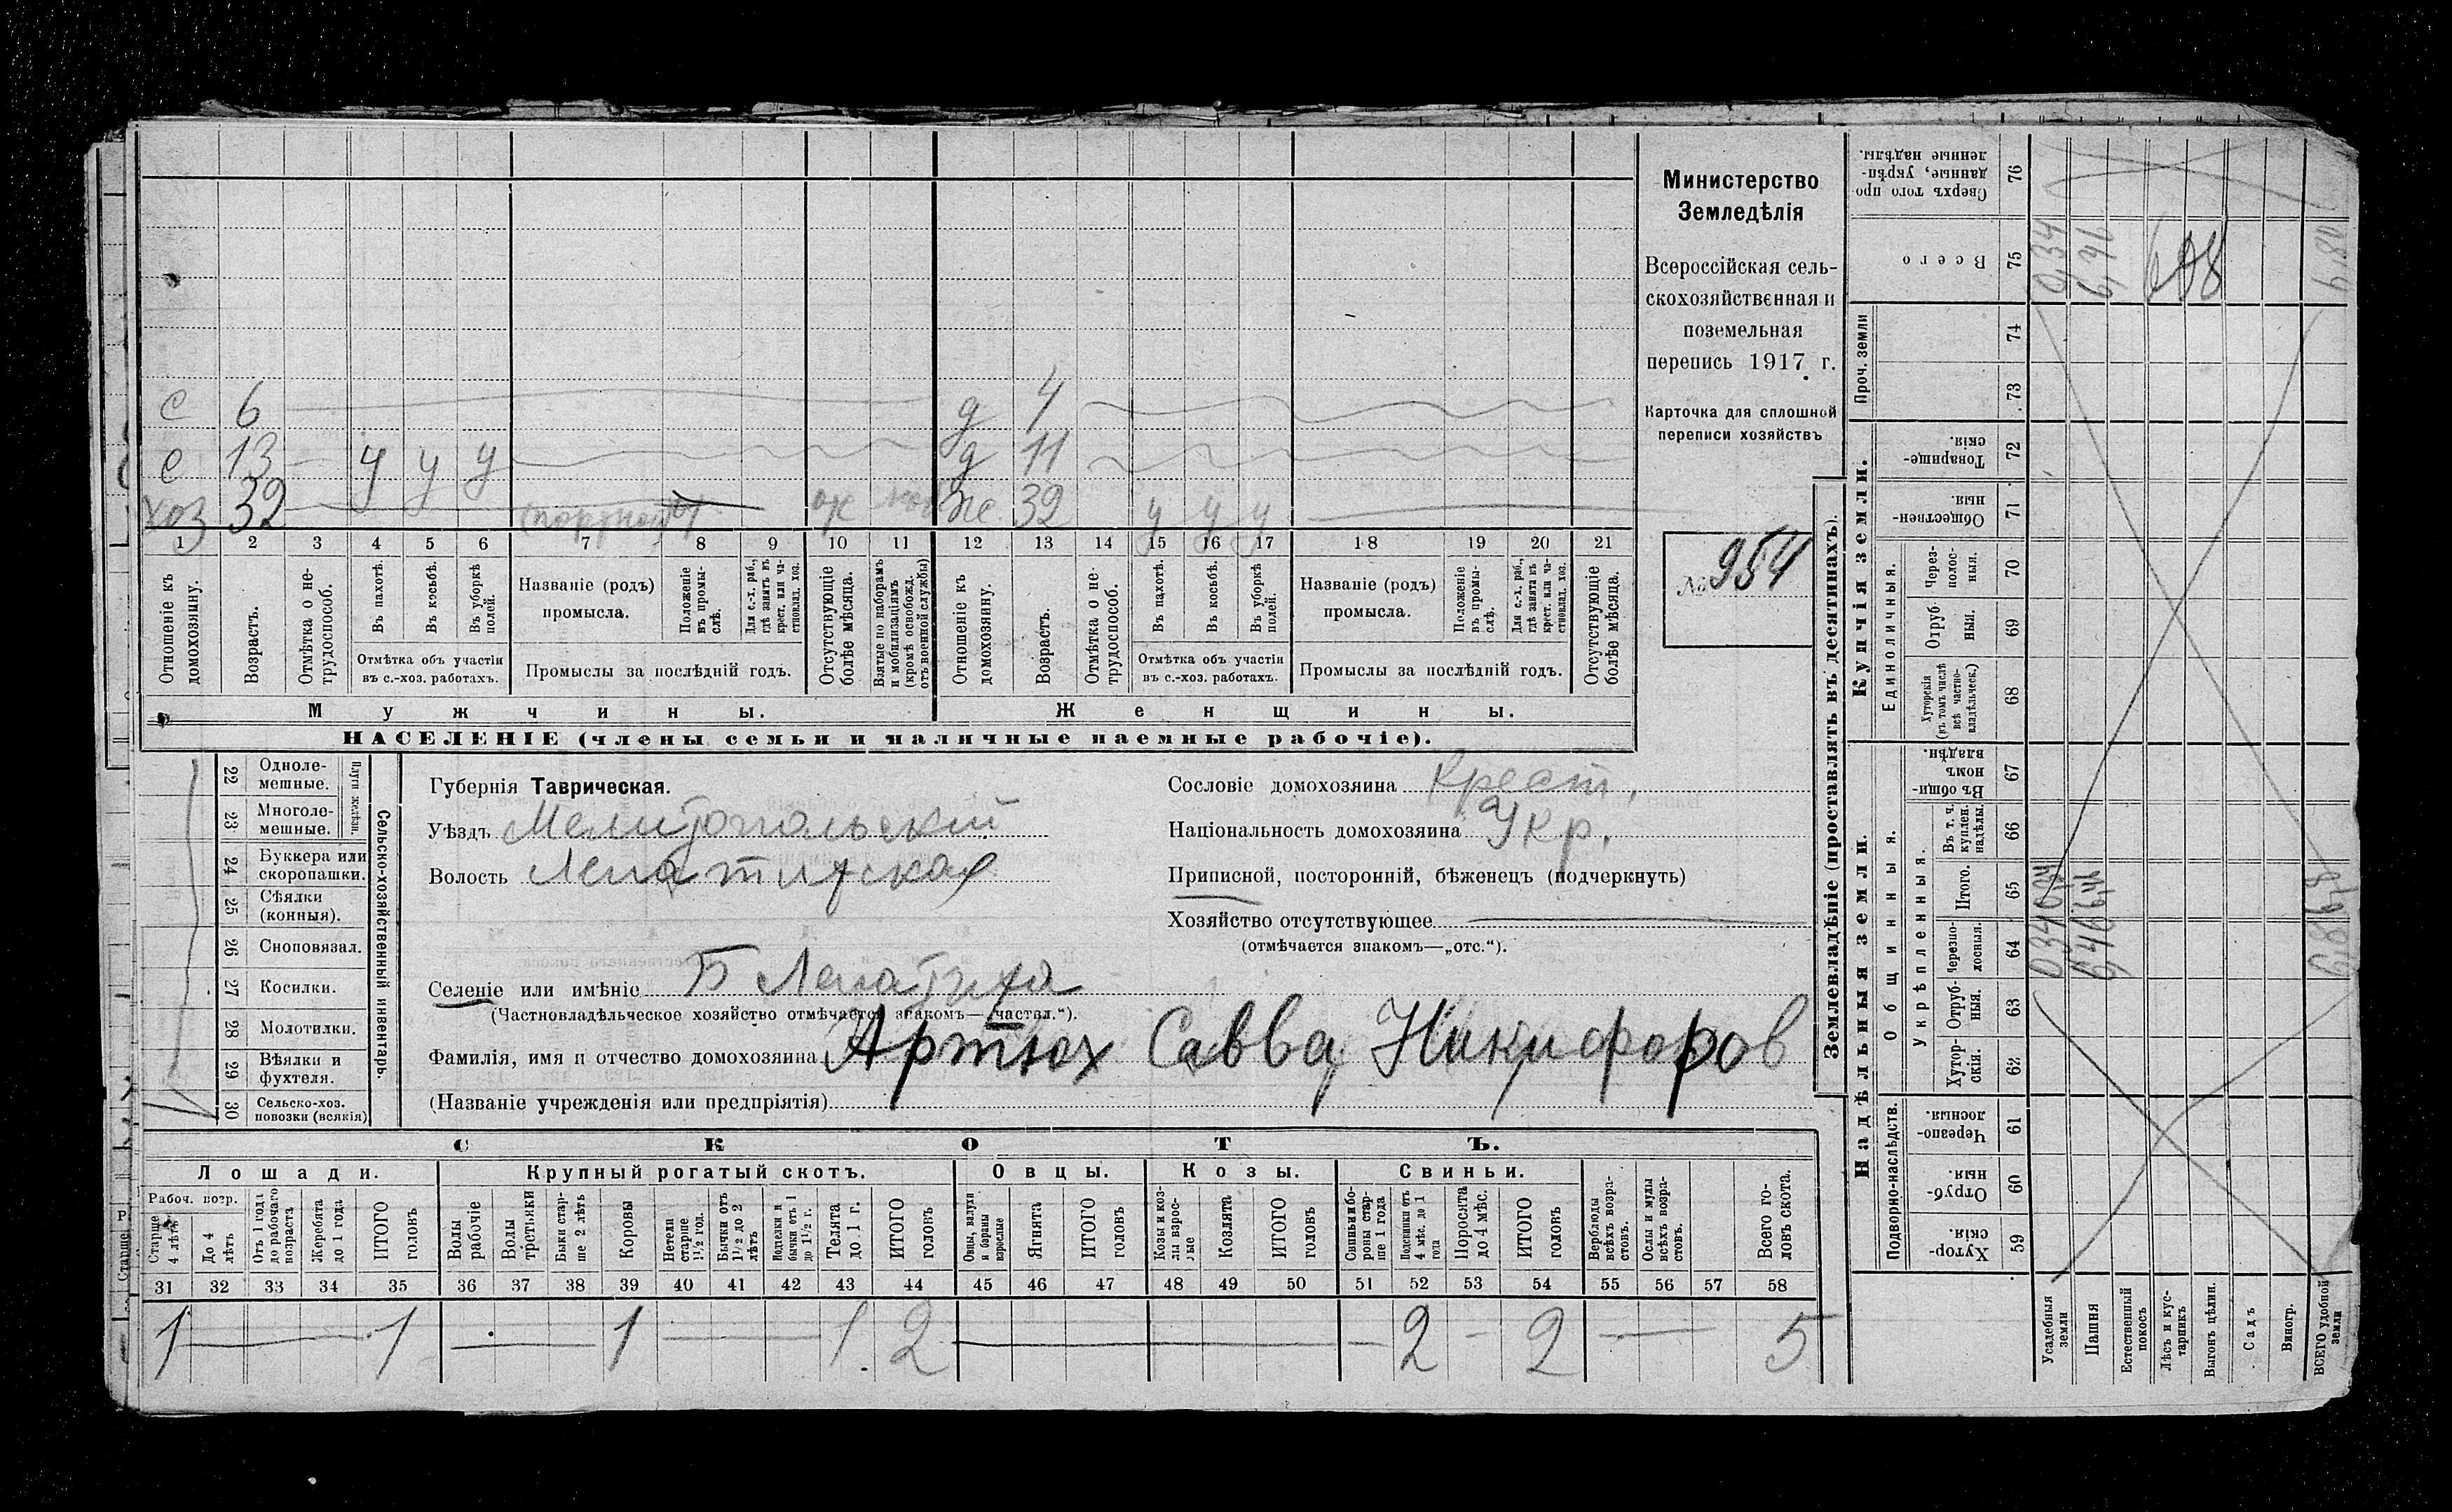 Министерство
Земледѣлія
Всероссійская сель-
скохозяйственная и
поземельная
перепись 1917 г.
Карточка для сплошной
переписи хозяйствъ
№ 954
с 6 д 4
с 13 у у у д 11
хоз 32 портной же 32 у у у
1 2 3 4 5 6 7 8 9 10 11 12 13 14 15 16 17 18 19 20 21
Отношеніе къ домохозяину.
Возрастъ.
Отмѣтка о не-трудоспособ.
Въ пахотѣ.
Въ косьбѣ.
Въ уборкѣ полей.
Отмѣтка объ участіи
въ с.-хоз. работахъ.
Названіе (родъ)
промысла.
Положеніе въ промы-слѣ.
Для с.-х. раб., гдѣ занятъ въ крест. или ча-стновлад. хоз.
Промыслы за послѣдній годъ.
Отсутствующіе болѣе мѣсяца.
Взятые по наборамъ и мобилизаціямъ (кромѣ освобожд. отъ военной службы)
Отношеніе къ домохозяину.
Возрастъ.
Отмѣтка о не-трудоспособ.
Въ пахотѣ.
Въ косьбѣ.
Въ уборкѣ полей.
Отмѣтка объ участіи
въ с.-хоз. работахъ.
Названіе (родъ)
промысла.
Положеніе въ промы-слѣ.
Для с.-х. раб., гдѣ занята въ крест. или ча-стновлад. хоз.
Промыслы за послѣдній годъ.
Отсутствующіе болѣе мѣсяца.
Мужчины. Женщины.
НАСЕЛЕНІЕ (члены семьи и наличные наемные рабочіе).
Сельско-хозяйственный инвентарь.
Плуги желѣзн.
22 Одноле-мешные.
23 Многоле-мешные.
24 Буккера или скоропашки.
25 Сѣялки (конныя).
26 Сноповязал.
27 Косилки.
28 Молотилки.
29 Вѣялки и фухтеля.
30 Сельско-хоз. повозки (всякія)
Губернія Таврическая.
Уѣздъ Мелитопольскій
Волость Лепатихская
Селеніе или имѣніе Б Лепатиха
(Частновладѣльческое хозяйство отмѣчается знакомъ—„частвл.“).
Фамилія, имя и отчество домохозяина Артюх Савва Никифоров
(Названіе учрежденія или предпріятія)
Сословіе домохозяина Крест.
Національность домохозяина Укр.
Приписной, посторонній, бѣженецъ (подчеркнуть)
Хозяйство отсутствующее
(отмѣчается знакомъ—„отс.“).
СКОТЪ.
Лошади. Крупный рогатый скотъ. Овцы. Козы. Свиньи.
Рабоч. возр.
Старше 4 лѣтъ
До 4 лѣтъ
Отъ 1 года до рабочаго возраста
Жеребята до 1 года
ИТОГО головъ
Волы рабочіе
Волы третьяки
Быки стар-ше 2 лѣтъ
Коровы
Нетели старше 1½ год.
Бычки отъ 1½ до 2 лѣтъ
Подтелки и бычки отъ 1 до 1½ г.
Телята до 1 г.
ИТОГО головъ
Овцы, валухи и бараны взрослые
Ягнята
ИТОГО головъ
Козы и коз-лы взрос-лые
Козлята
ИТОГО головъ
Свиньи и бо-ровы стар-ше 1 года
Подсвинки отъ 4 мѣс. до 1 года
Поросята до 4 мѣс.
ИТОГО головъ
Верблюды всѣхъ возра-стовъ.
Ослы и мулы всѣхъ возра-стовъ.
Всего го-ловъ скота.
31 32 33 34 35 36 37 38 39 40 41 42 43 44 45 46 47 48 49 50 51 52 53 54 55 56 57 58
1 1 1 1 2 2 2 5
Землевладѣніе (проставлять въ десятинахъ).
Надѣльныя земли. Купчія земли. Проч. земли
Подворно-наслѣдств.
Общинныя.
Укрѣпленныя.
Единоличныя.
Сверхъ того про-данные, укрѣп-ленные надѣлы. 76
Всего 75 0,34 6,46 6,80
74
73
Товарище-скія. 72
Обществен-ныя. 71
Через-полос-ныя. 70
Отруб-ныя. 69
Хуторскія (въ томъ числѣ всѣ частно-владѣльческ.) 68
Въ общи-номъ владѣн. 67
Въ т. ч. куплен. надѣлы 66
Итого. 65
Черезпо-лосныя. 64 034 6,46 6,80
Отруб-ныя. 63
Хутор-скія. 62
Черезпо-лосныя. 61
Отруб-ныя. 60
Хутор-скія. 59
Усадебныя земли
Пашня
Естественный покосъ
Лѣсъ и кус-тарникъ
Выгонъ цѣлин.
Садъ
Виногр.
ВСЕГО удобной земли